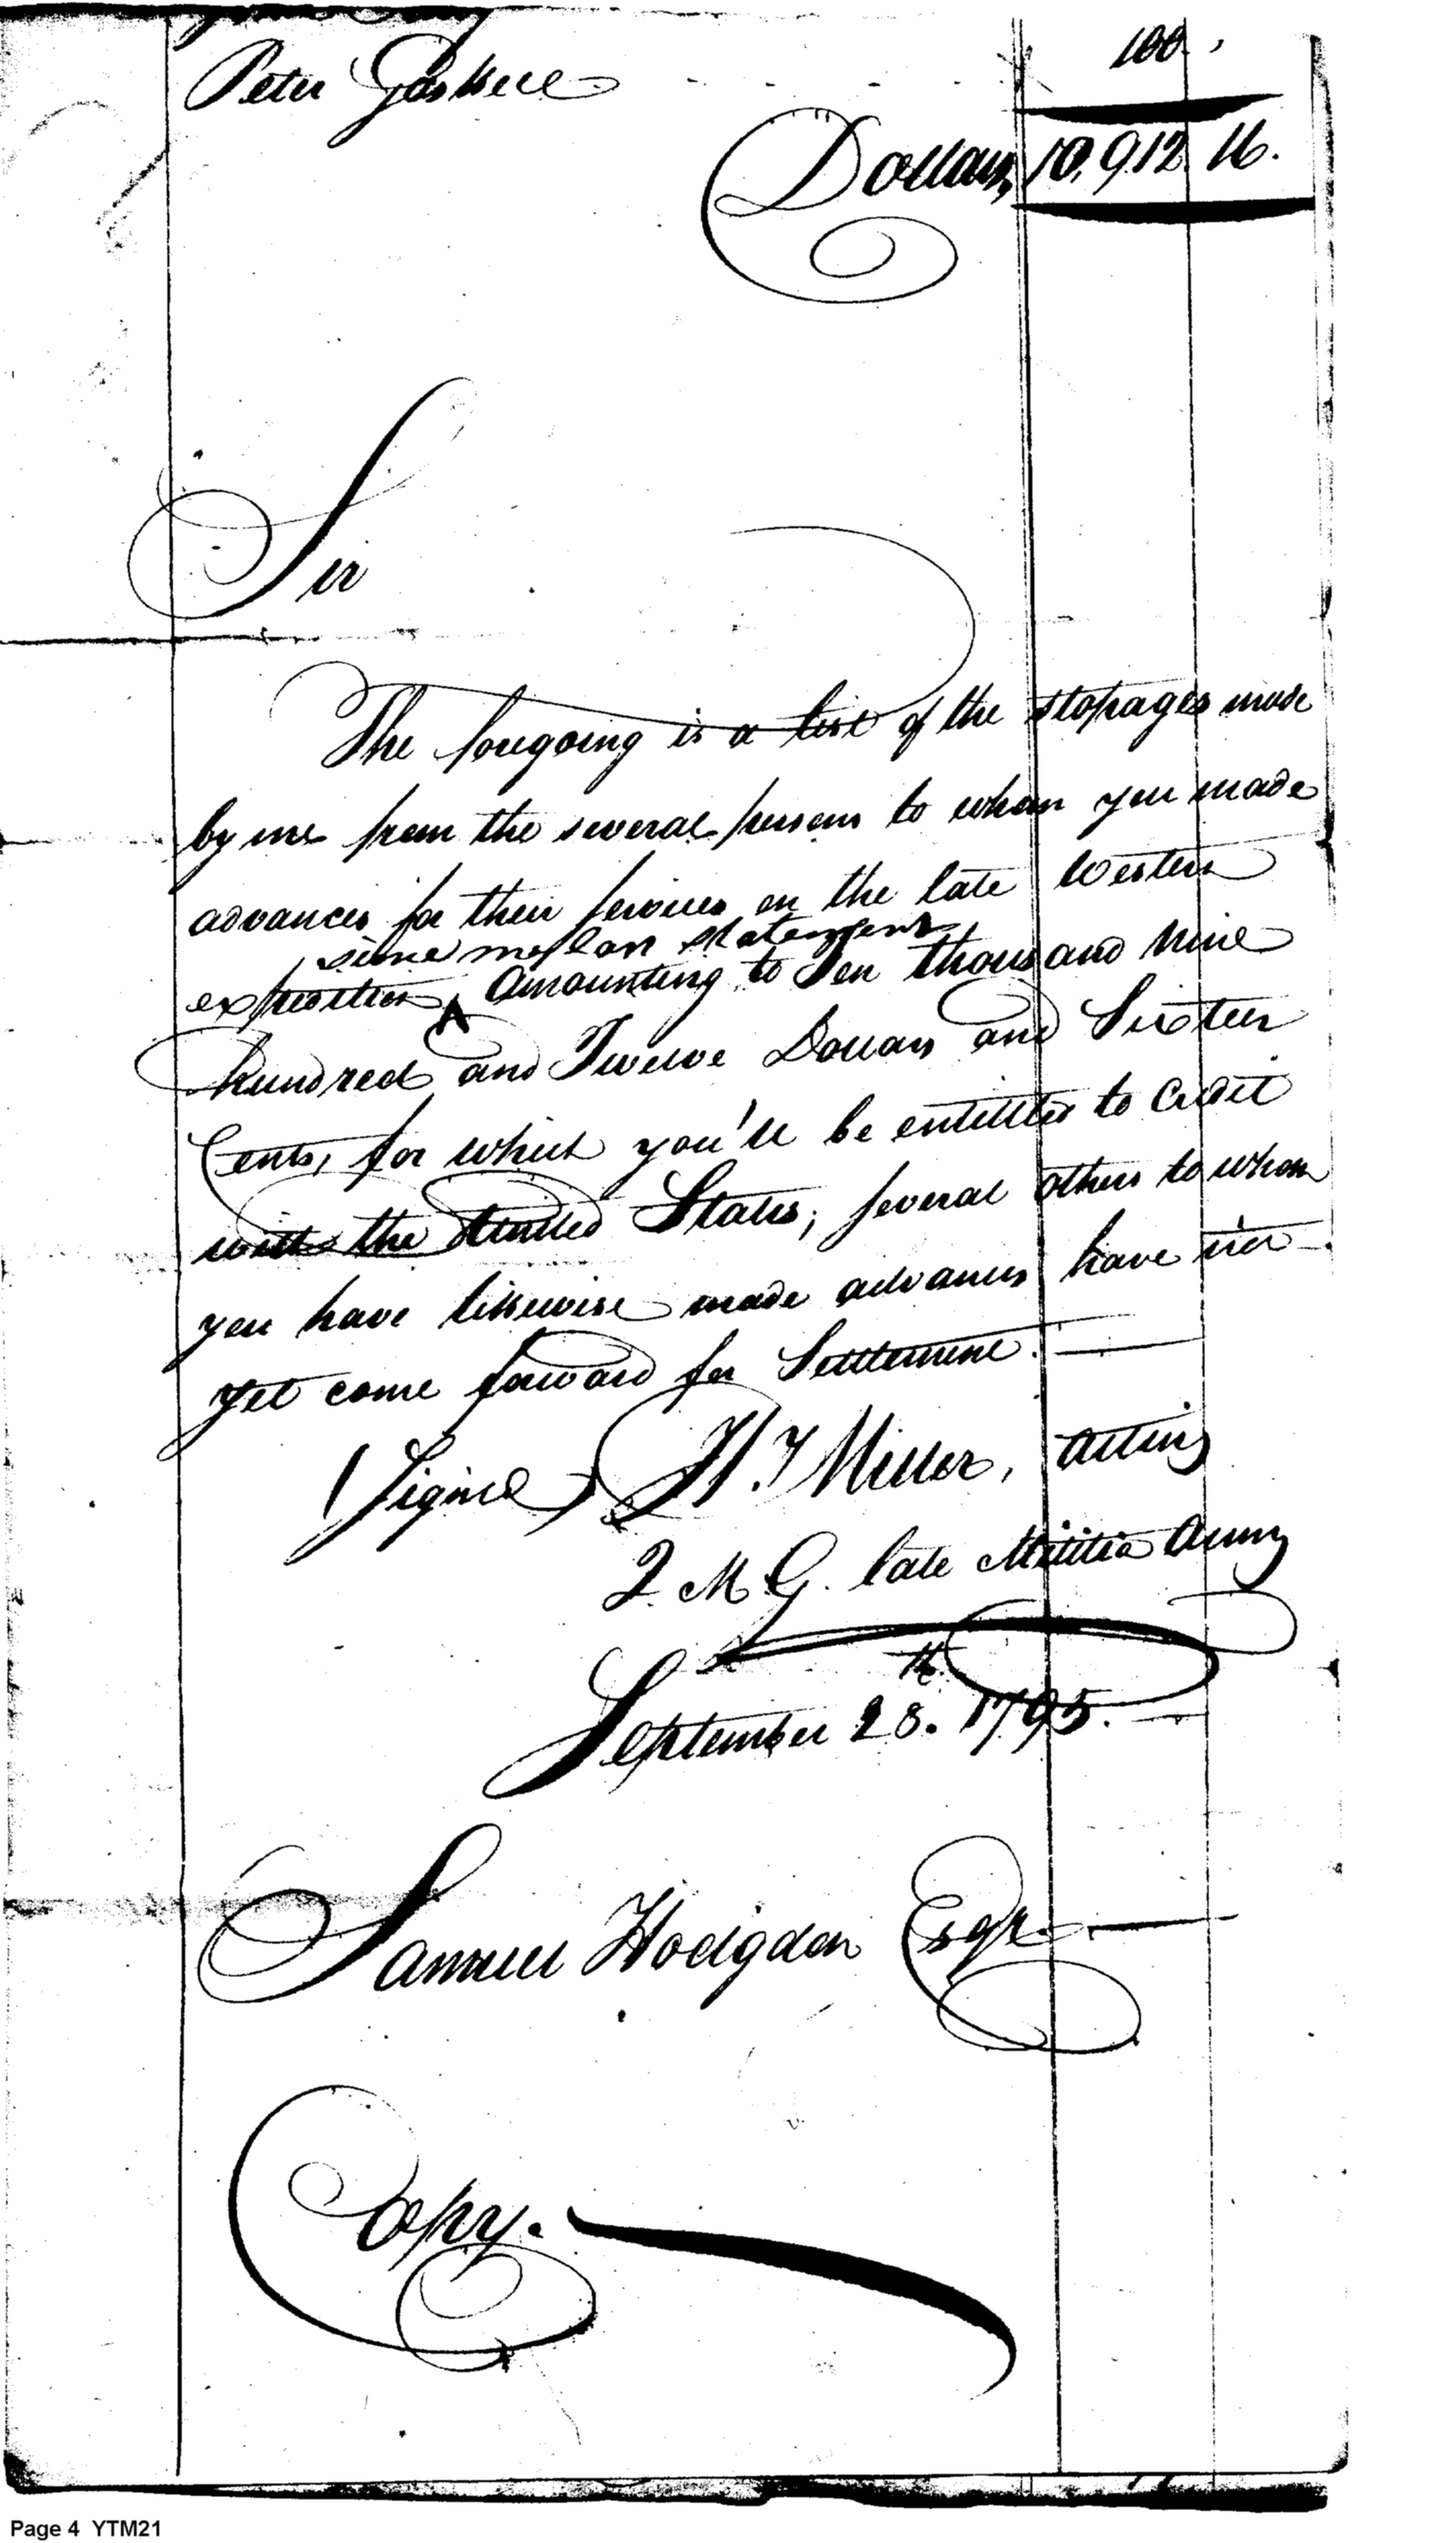 Peter Gaskell 100.
Dollars, 10,912. 16.
Sir
The foregoing is a list of the stopages made
by me from the several persons to whom you made
advances for their services on the late Western
since my last statement
expedition, Amounting to Ten thousand Nine
hundred and Twelve Dollars and Sixteen
Cents, for which you'll be entitled to Credit
with the United States; several others to whom
you have likewise made advances have not
yet come forward for Settlement.
(Signed) H. Miller, acting
Q. M. G. late Militia Army
September 28th. 1795.
Samuel Hodgdon Esqr.
Copy.
Page 4 YTM21